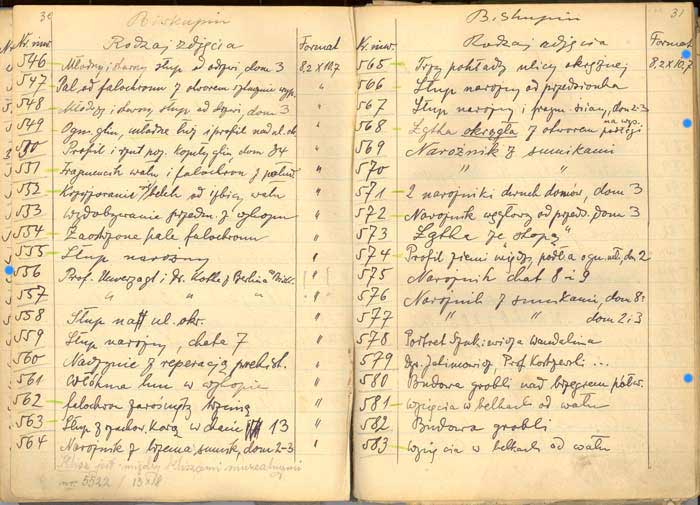 30
Biskupin
Nr. inw. Rodzaj zdjęcia Format
546 Młodszy i starszy słup od odrzwi, dom 3 8,2 x 10,7
547 Pal od falochronu z otworem "
548 Młodszy i starszy słup od drzwi, dom 3 "
549 Ogn. glin., młodsze i profil nad ul. "
550 Profil i rzut poj. kopuły glin. dom 34 "
551 Fragment wału i falochron z "
552 belek od izbicy wału "
553 Wydobywanie przedm. z wykopu "
554 Zaostrzone pale falochronu "
555 Słup narożny "
556 Prof. Unverzagt i Dr. z Berlina "
557 " " " "
558 Słup nad ul. okr.
559 Słup narożny, chata 7 "
560 Naczynie z reperacją prehist. "
561 Włókna lnu w wykopie "
562 falochron zarośnięty trzciną "
563 Słup z zachow. korą w chacie 13 "
564 Narożnik z trzema sumik, dom 2-3 "
Klisz jest między kliszami muzealnymi
nr. 5522 / 13x18
31
Biskupin
Nr. inw. Rodzaj zdjęcia Format
565 Trzy pokłady ulicy okrężnej 8,2 x 10,7
566 Słup narożny od przedsionka
567 Słup narożny i fragm. ściany, dom 2-3
568 Żątka okrągła z otworem na wyp.
569 Narożnik z sumikami
570 " "
571 2 narożniki dwuch domów, dom 3
572 Narożnik węgłowy od przeds. dom 3
573 Łątka ze "stopą"
574 Profil ziemi między podł a ogn. mł, dn 2
575 Narożnik chat 8 i 9
576 Narożnik z sumikami, dom 8
577 " " dom 2 i 3
578 Portret Szukiewicza Wandalina
579 Dyr. Jakimowicz, Prof. Kostrzewski ...
580 Budowa grobli nad brzegiem półw.
581 wycięcia w belkach od wału
582 Budowa grobli
583 wycięcia w belkach od wału